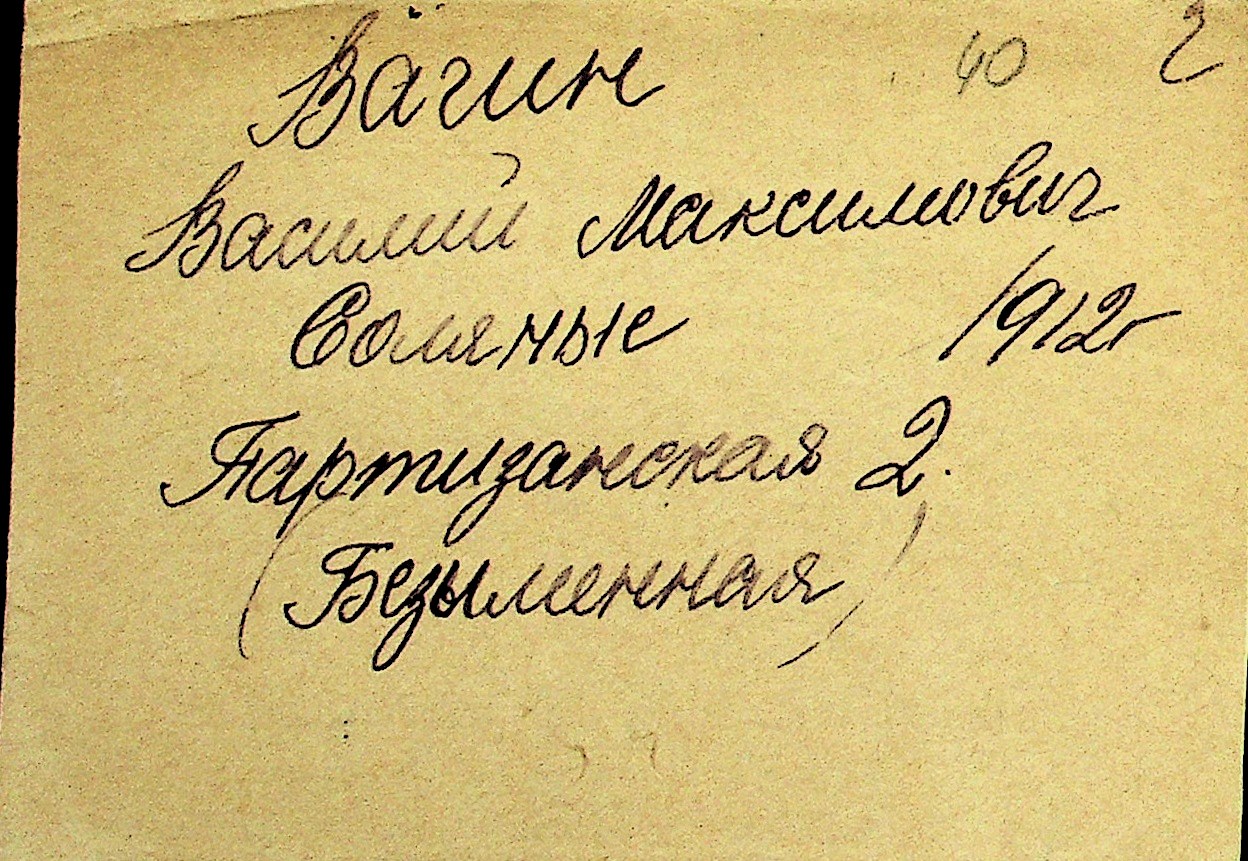 Вагин 40 2
Василий Максимович
Соляные 1912г
Партизанская 2.
(Безыменная)